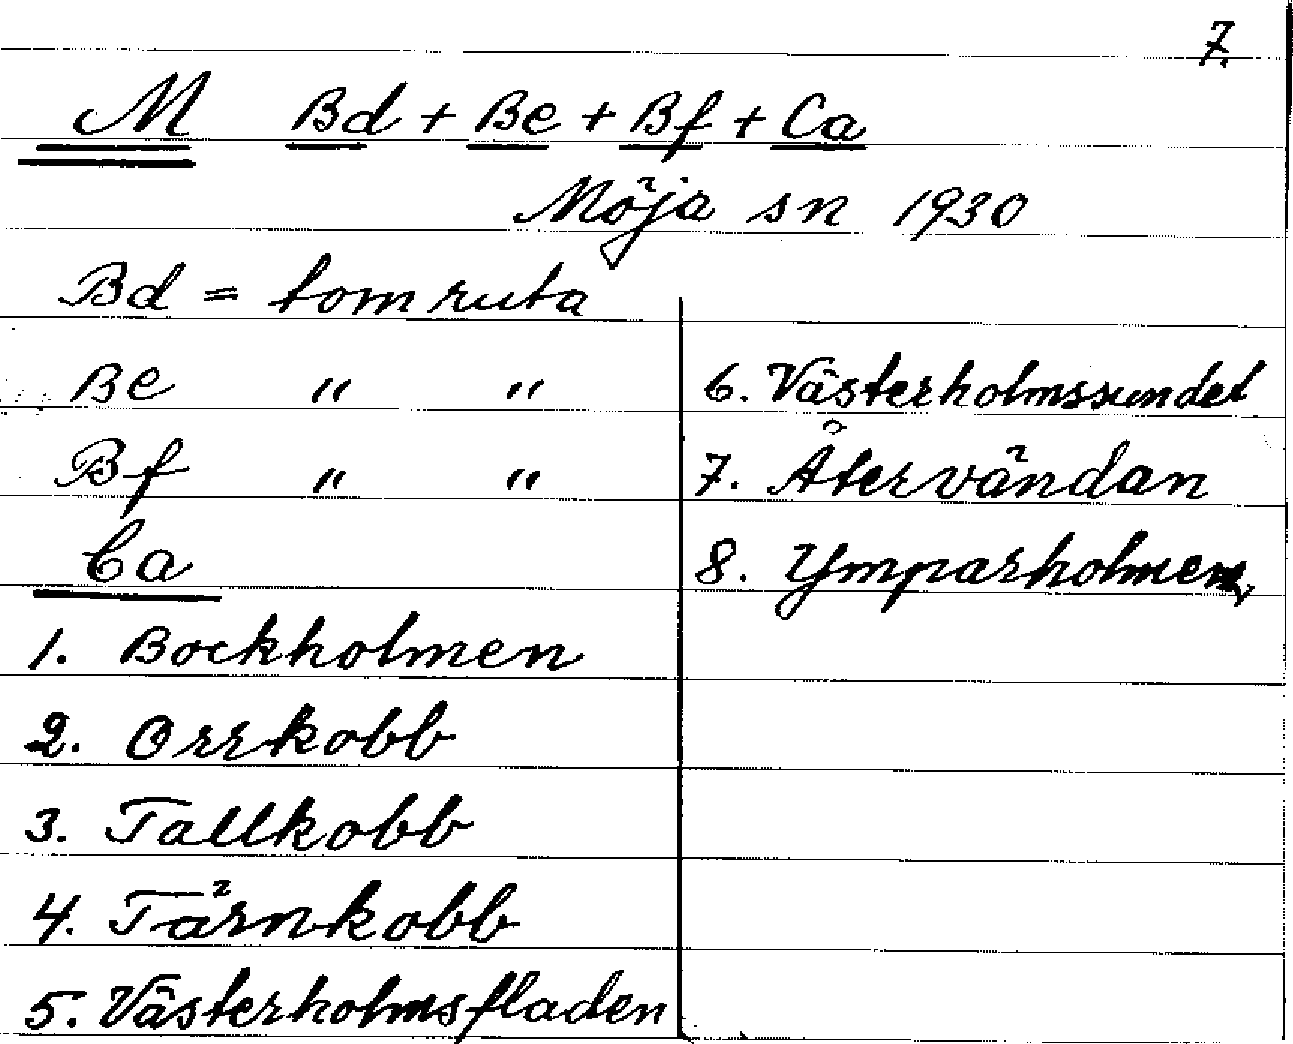 7.
M Bd + Be + Bf + Ca
Möja sn 1930
Bd = tom ruta
Be " "
Bf " "
Ca
1. Bockholmen
2. Orrkobb
3. Tallkobb
4. Tärnkobb
5. Västerholmsfladen
6. Västerholmssundet
7. Återvändan
8. Ymparholmen